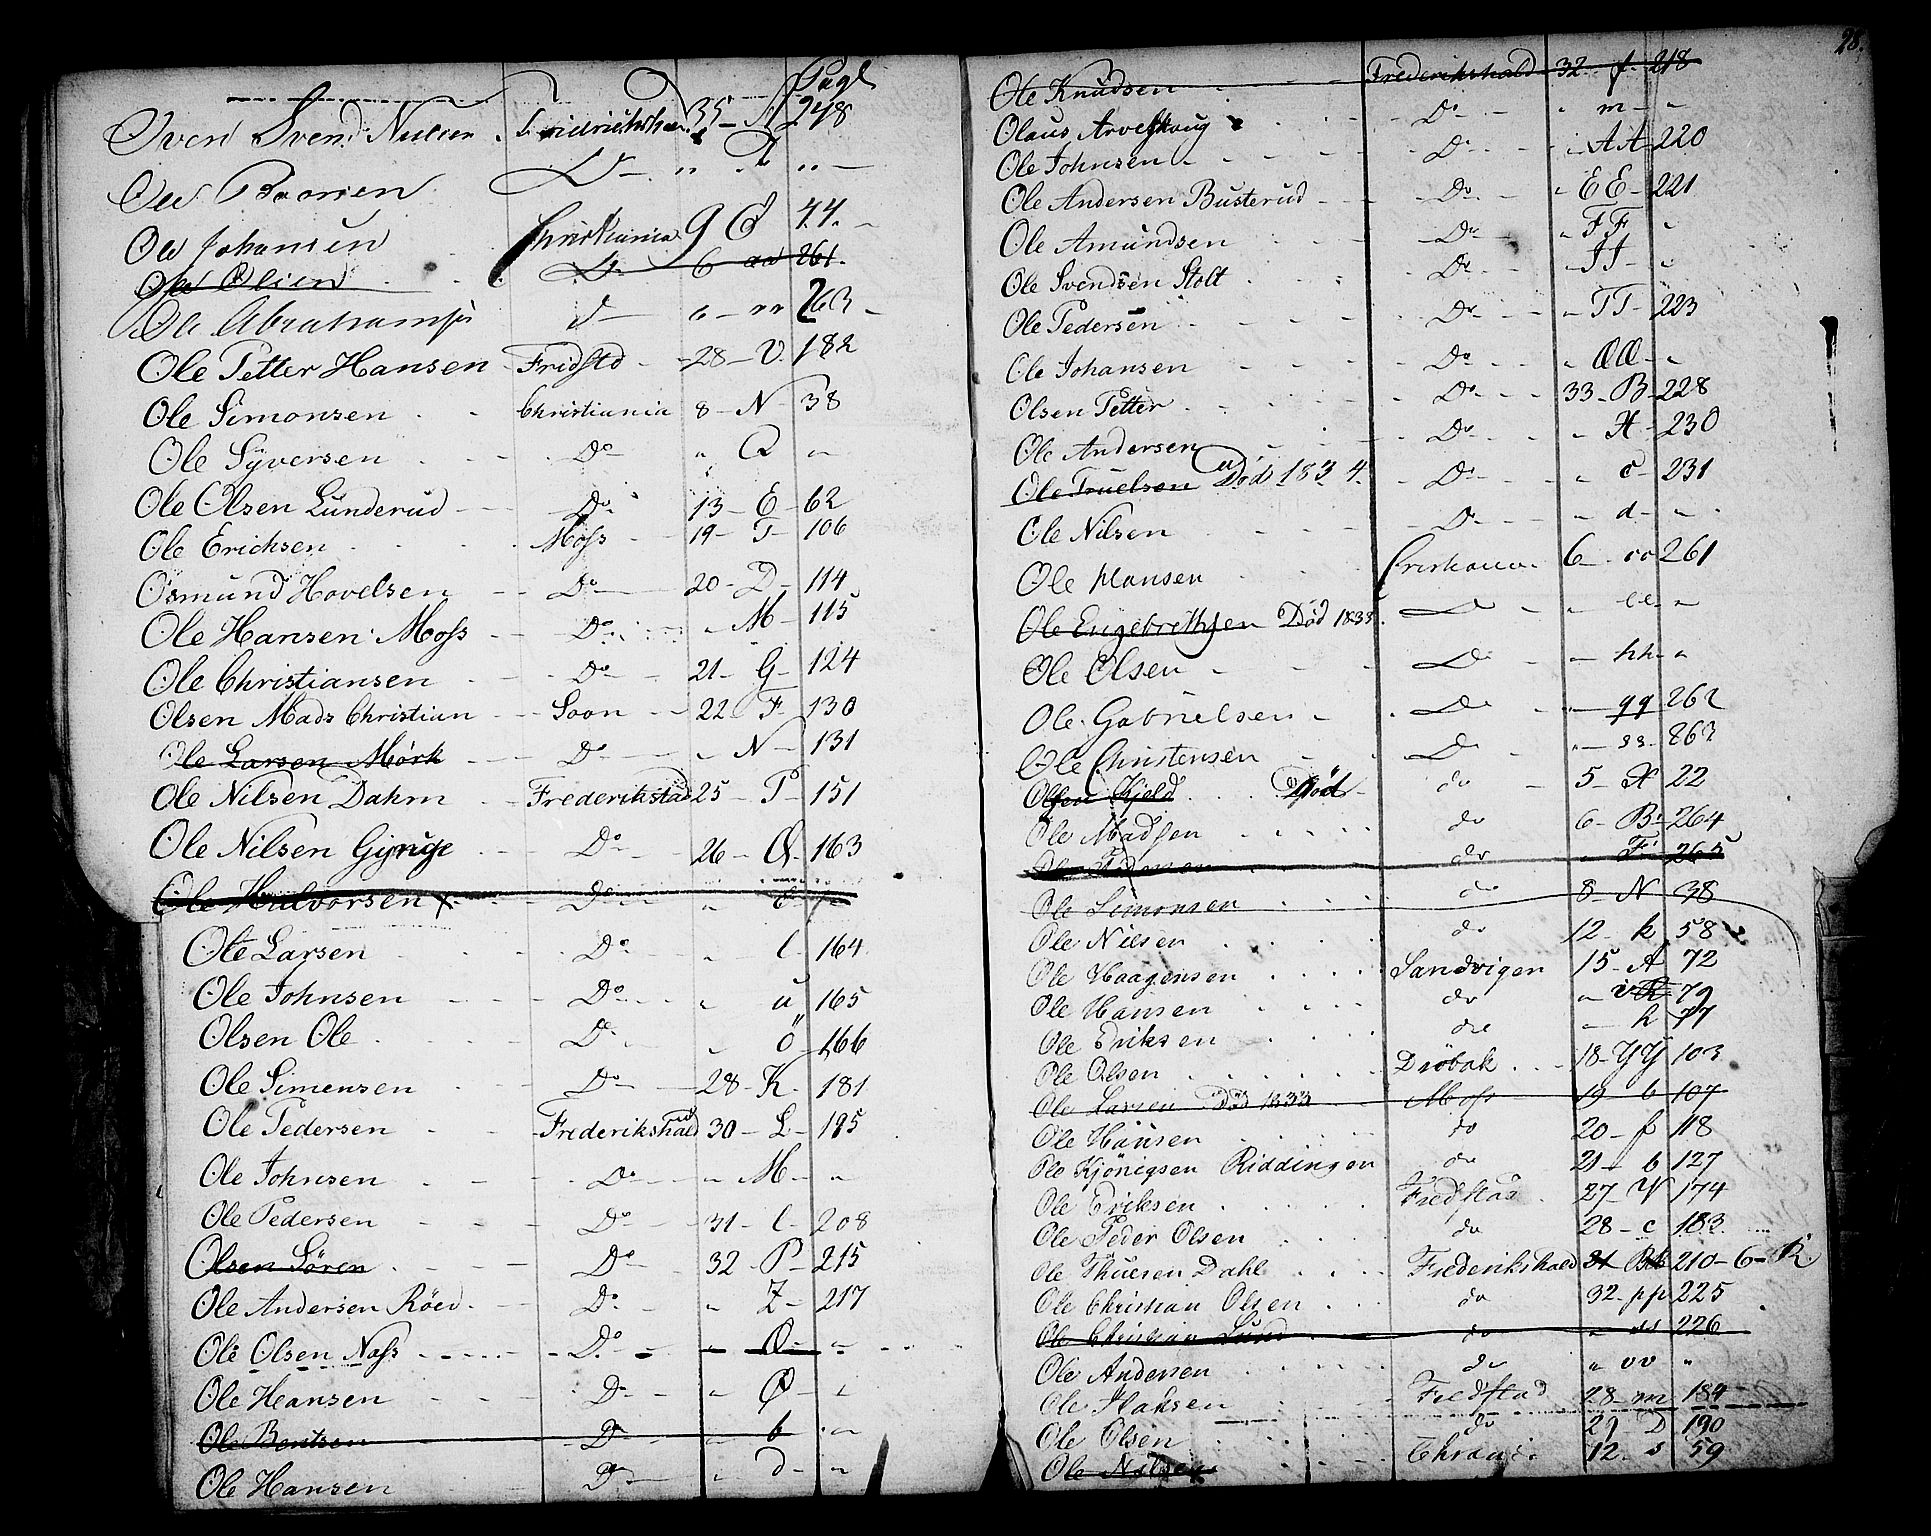 Page
Sven Svend Nielsen Fridrichsha 35 - N 248
Ole Do " - "
Ole Johansen Christiania 9 44
Ole Olsen D 6 aa 261
Ole Abrahams 6 - nn 263
Ole Petter Hansen Fridstd 28 - V. 182
Ole Simonsen Christiania 8 - N 38
Ole Syversen Do " Q "
Ole Olsen Lunderud Do 13 - E - 62
Ole Erichsen Moss 19 - T - 106
Osmund Hovelsen Do 20 - D - 114
Ole Hansen Moss Do " M - 115
Ole Christiansen Do 21 - G - 124
Olsen Mads Christian Soon 22 F - 130
Ole Larsen Mörk Do " N - 131
Ole Nilsen Dahm Frederikstad 25 - P - 151
Ole Nilsen Do 26 - Q - 163
Ole Halvorsen Do "
Ole Larsen Do l - 164
Ole Johnsen Do " u 165
Olsen Ole Do " ö 166
Ole Simensen Do 28 - K. 181
Ole Pedersen Frederikshald 30 - L - 195
Ole Johnsen Do " M - "
Ole Pedersen Do 31 - l - 208
Olsen Sören Do 32 - P - 215
Ole Andersen Röed Do " Z - 217
Ole Olsen Nass Do " Ø - "
Ole Hansen Do " Ø - "
Ole Bentsen Do " b "
Ole Hansen Do " d - "
28.
Ole Knudsen Frederikshald 32 - f - 218
Olaus Do " m - "
Ole Johnsen Do " AA 220
Ole Andersen Busterud Do " EE - 221
Ole Amundsen Do " FF "
Ole Svendsen Stolt Do " II - "
Ole Pedersen Do " TT - 223
Ole Johansen Do " ŒŒ - "
Olsen Petter Do 33 - B - 228
Ole Andersen Do " H - 230
Ole Truelsen Död 1834 Do " c - 231
Ole Nilsen Do " d - "
Ole Hansen 6 - cc 261
Ole Engebrethsen Död 1833. D " ee "
Ole Olsen Do - hh - "
Ole Gabrielsen D - qq 262
Ole Christensen D - ss - 263
Olsen Kjeld Död do 5 - H 22
Ole Madsen do 6 - B 264
Ole do - F 265
Ole Simonsen do 8 - N 38
Ole Nilsen do 12 - k 58
Ole Haagensen Sandvigen 15 - A 72
Ole Hansen do " 79
Ole Eriksen do - h 77
Ole Olsen Dröbak 18 - YY 103
Ole Larsen Död 1833 Moss 19 b 107
Ole Hansen do 20 - f 118
Ole Kjönigsen Riddingen do 21 b 127
Ole Eriksen Fredstad 27 - W 174
Ole Peder Olsen do 28 - c 183
Ole Thuesen Dahl Frederikshald 31 210 - 6 - R.
Ole Christian Olsen do 32 - pp 225
Ole Christian Lund do " ss 226
Ole Andersen do " vv "
Ole Hansen Fredstad 28 - m 184
Ole Olsen do 29 - D 190
Ole 12 - s 59